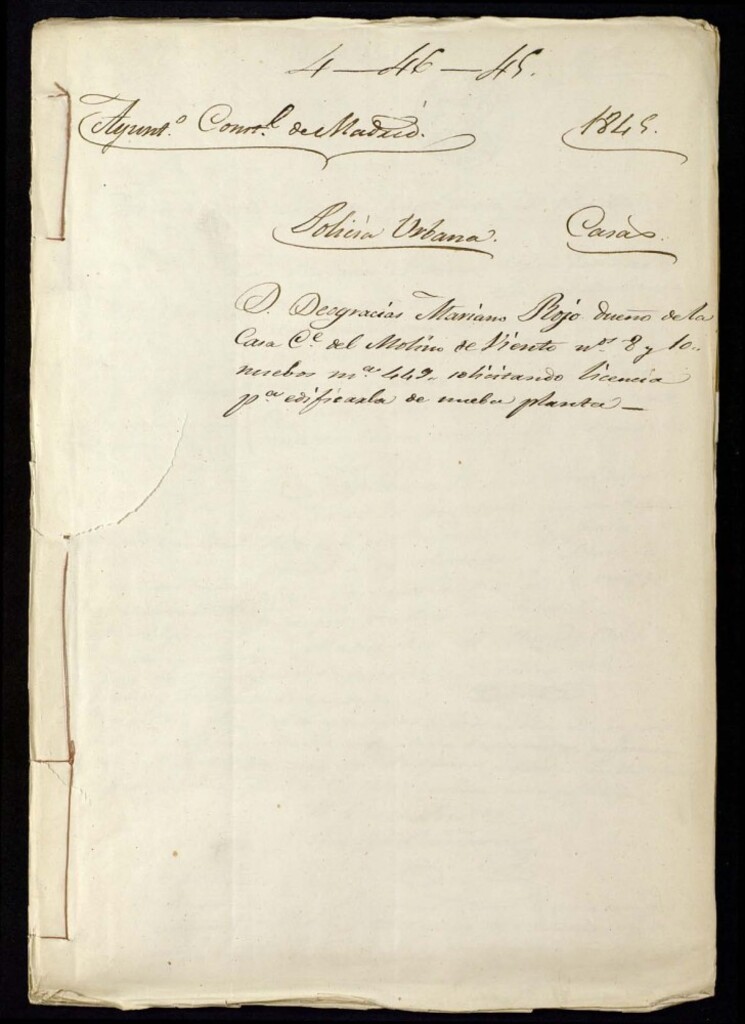 4-46-45.
Ayunt.º Const.l de Madrid. 1845.
Policia Urbana. Casas.
D. Deogracias Mariano Rojo dueño de la
Casa C.e del Molino de Viento n.os 8 y 10
nuebos m.a 449 solicitando licencia
p.a edificarla de nueba planta —